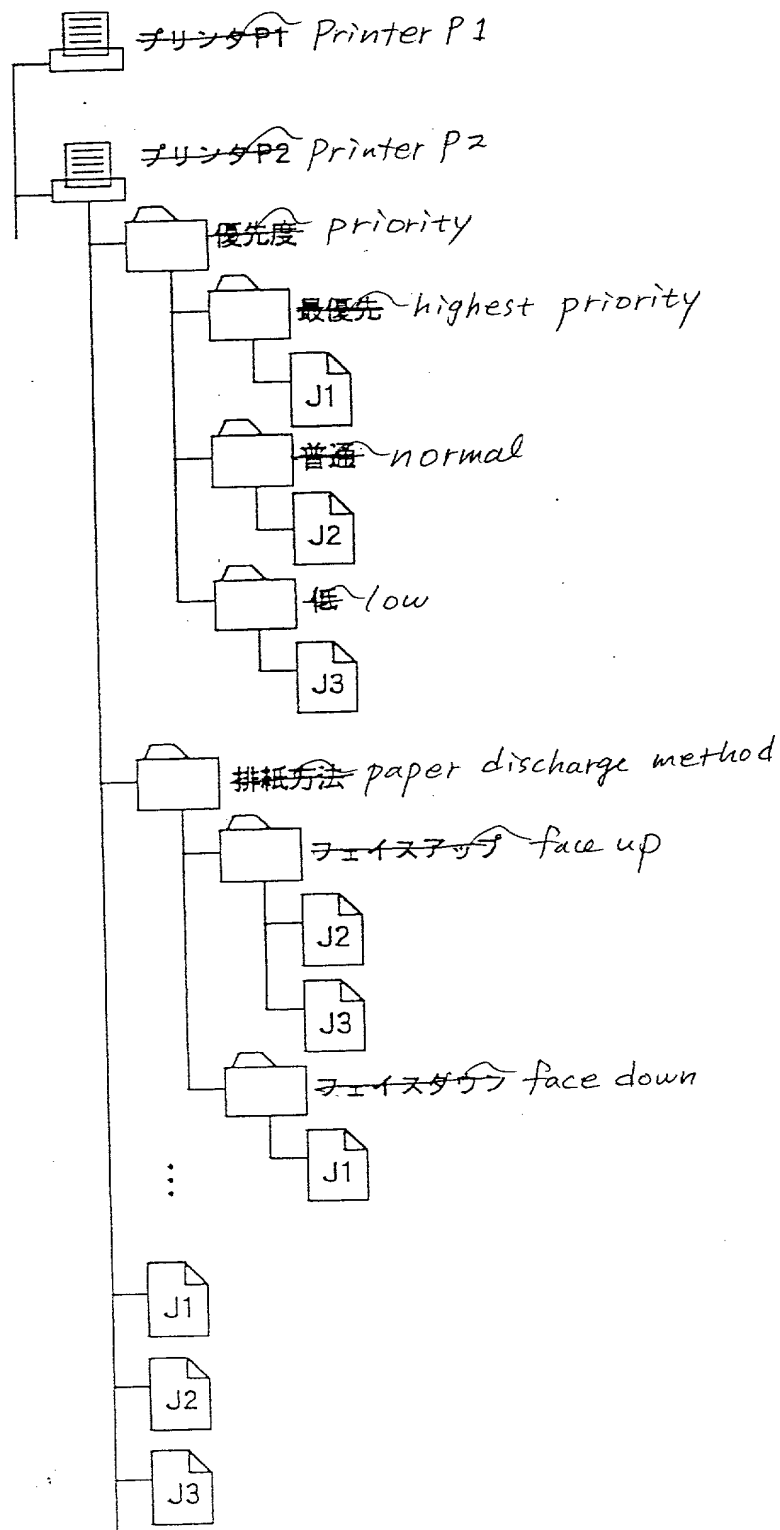 プリンタP1 Printer P1
プリンタP2 Printer P2
優先度 priority
最優先 highest priority
J1
普通 normal
J2
低 low
J3
排紙方法 paper discharge method
フェイスアップ face up
J2
J3
フェイスダウン face down
J1
⋮
J1
J2
J3